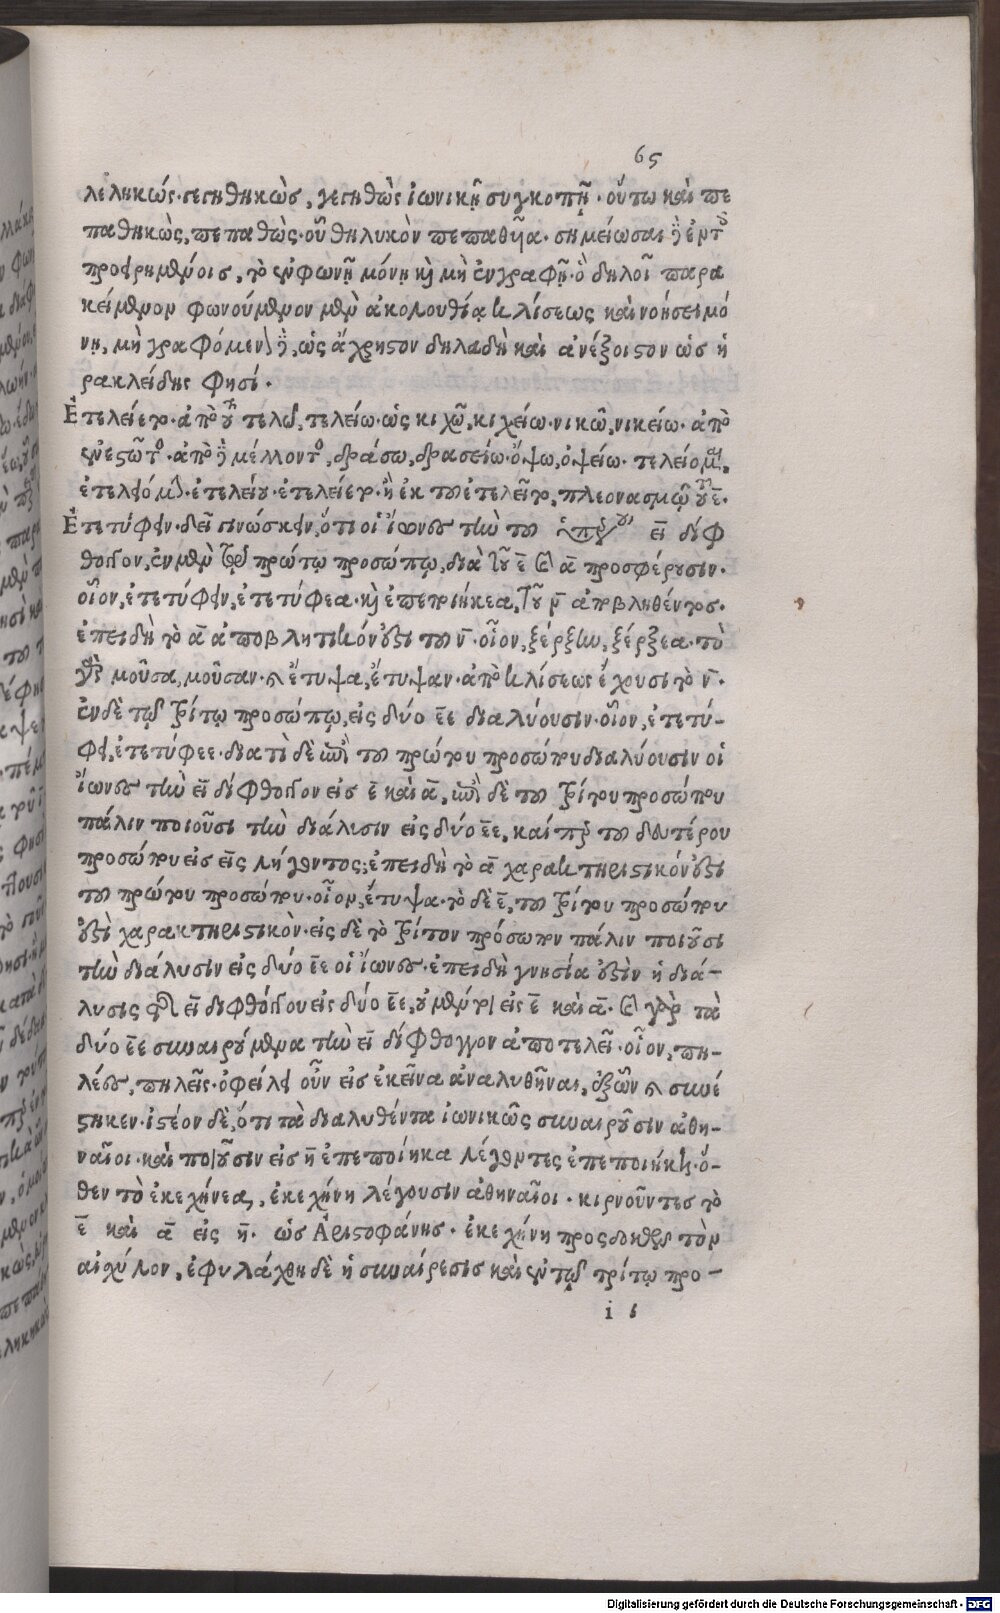 65
λεληκώς. γεγηθηκὼς, γεγηθὼς ἰωνικῇ συγκοπῇ. οὕτω καὶ πε
παθηκὼς, πεπαθὼς. οὗ θηλυκὸν πεπαθῦα. σημείωσαι
προειρημένοις, τὸ ἐν φωνῇ μόνῃ καὶ μὴ ἐν γραφῇ. ὃ δηλοῖ παρα
κείμενον φωνούμενον μὲν ἀκολουθίᾳ κλίσεως καὶ νοήσει μό
νῃ, μὴ γραφόμενον δὲ, ὡς ἄχρηστον δηλαδὴ καὶ ἀνέξοιστον ὡς ἡ
ρακλείδης φησί.
Ἐτελείετο. ἀπὸ τοῦ τελῶ, τελείω. ὡς κιχῶ, κιχείω. νικῶ, νικείω. ἀπὸ
ἐνεστῶτος. ἀπὸ δὲ μέλλοντος, δράσω, δρασείω. ὄψω, ὀψείω. τελείομαι,
ἐτελειόμην. ἐτελείου. ἐτελείετο. ἢ ἐκ τοῦ ἐτελεῖτο, πλεονασμῷ τοῦ ε̄.
Ἐτετύφειν. δεῖ γινώσκειν, ὅτι οἱ ἴωνες τὴν τοῦ ὑπερσυντελίκου εῑ δίφ
θογγον, ἐν μὲν τῷ πρώτῳ προσώπῳ, διὰ τοῦ ε̄ καὶ ᾱ προσφέρουσιν.
οἷον, ἐτετύφειν, ἐτετύφεα. καὶ ἐπεποιήκεα, τοῦ ν̄ ἀποβληθέντος.
ἐπειδὴ τὸ ᾱ ἀποβλητικόν ἐστι τοῦ ν̄. οἷον, ξέρξην, ξέρξεα. τὸ
γὰρ μοῦσα, μοῦσαν. καὶ ἔτυψα, ἔτυψαν. ἀπὸ κλίσεως ἔχουσι τὸ ν̄.
ἐν δὲ τῷ τρίτῳ προσώπῳ, εἰς δύο ε̄ε̄ διαλύουσιν. οἷον, ἐτετύ-
φει, ἐτετύφεε. διατὶ δὲ ἐπὶ τοῦ πρώτου προσώπου διαλύουσιν οἱ
ἴωνες τὴν εῑ δίφθογγον εἰς ε̄ καὶ ᾱ, ἐπὶ δὲ τοῦ τρίτου προσώπου
πάλιν ποιοῦσι τὴν διάλυσιν εἰς δύο ε̄ε̄, καίπερ τοῦ δευτέρου
προσώπου εἰς εις̄ λήγοντος; ἐπειδὴ τὸ ᾱ χαρακτηριστικόν ἐστι
τοῦ πρώτου προσώπου. οἷον, ἔτυψα. τὸ δὲ ε̄, τοῦ τρίτου προσώπου
ἐστὶ χαρακτηριστικὸν. εἰς δὲ τὸ τρίτον πρόσωπον πάλιν ποιοῦσι
τὴν διάλυσιν εἰς δύο ε̄ε̄ οἱ ἴωνες. ἐπειδὴ γνησία ἐστὶν ἡ διά-
λυσις τῆς εῑ διφθόγγου εἰς δύο ε̄ε̄, οὐ μέντοι εἰς ε̄ καὶ ᾱ. καὶ γὰρ τὰ
δύο ε̄ε̄ συναιρούμενα τὴν εῑ δίφθογγον ἀποτελεῖ. οἷον, πη-
λέες, πηλεῖς. ὀφείλει οὖν εἰς ἐκεῖνα ἀναλυθῆναι, ἐξ ὧν καὶ συνέ
στηκεν. ἰστέον δὲ, ὅτι τὰ διαλυθέντα ἰωνικῶς συναιροῦσιν ἀθη-
ναῖοι. καὶ ποιοῦσιν εἰς η̄ ἐπεποίηκα λέγοντες ἐπεποιήκη. ὅ-
θεν τὸ ἐκεχήνεα, ἐκεχήνη λέγουσιν ἀθηναῖοι. κιρνοῦντες τὸ
ε̄ καὶ ᾱ εἰς η̄. ὡς Ἀριστοφάνης. ἐκεχήνη προσδοκῶν τὸν
αἰχύλον, ἐφυλάχθη δὲ ἡ συναίρεσις καὶ ἐν τῷ τρίτῳ προ-
i ι
Digitalisierung gefördert durch die Deutsche Forschungsgemeinschaft - DFG